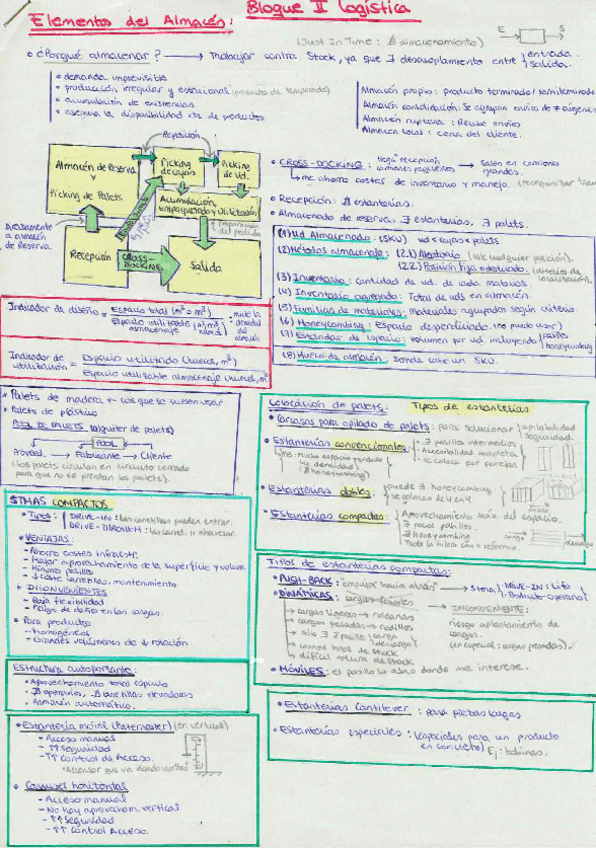 Bloque II Logística
Elementos del Almacén:
(Just In Time: ∄ almacenamiento)
E S
¿Porqué almacenar? → Trabajar contra Stock, ya que ∃ desacoplamiento entre entrada.
salida.
demanda imprevisible
producción irregular y estacional (producto de temporada)
acumulación de existencias
asegura la disponibilidad de productos.
Almacén propio: producto terminado/semiterminado
Almacén consolidación: Se agrupan envíos de ≠ orígenes
Almacén ruptura: Recibe envíos
Almacén local: cerca del cliente.
Reposición
Almacén de Reserva
y
Picking de Palets
Picking
de cajas
Picking
de ud.
Acumulación,
empaquetado y utilización
Preparación
del pedido
Directamente
a almacén
de Reserva.
Recepción
CROSS-
DOCKING
Salida
CROSS-DOCKING: llega recepción
camiones pequeños → Salen en camiones
grandes.
me ahorro costes de inventario y manejo.
Recepción: ∄ estanterías.
Almacenado de reserva: ∃ estanterías, ∃ palets.
(1) Ud Almacenado: (SKU) ud ≤ cajas ≤ palets
(2) Métodos almacenado: (2.1) Aleatorio (vale cualquier posición).
(2.2) Posición fija
(3) Inventario: cantidad de ud. de cada material.
(4) Inventario agregado: Total de uds en almacén.
(5) Familias de materiales: materiales agrupados según criterio
(6) Honeycombing: Espacio desperdiciado. (no puedo usar)
(7) Estándar de espacio: volumen por ud. incluyendo pasillos
honeycombing
(8) Hueco de almacén: Donde cabe un SKU.
Indicador de diseño = Espacio total (m² o m³)
Espacio utilizable
almacenaje
mide la
densidad
del
almacén
Indicador de
utilización = Espacio utilizado (huecos, m³)
Espacio utilizable almacenaje (huecos, m³)
Palets de madera + los que se suelen usar
Palets de plástico
POOL DE PALLETS (alquiler de palets)
POOL
Proveed. → Fabricante → Cliente
(los palets circulan en circuito cerrado
para que no se pierdan los palets).
Colocación de palets: Tipos de estanterías
Carcasas para apilado de palets: para solucionar apilabilidad
seguridad.
Estanterías convencionales: - ∃ pasillos intermedios
- Accesibilidad completa
- se coloca por parejas
PB: mucho espacio perdido
(↓ densidad)
(∃ honeycombing)
Estanterías dobles: puede ∃ honeycombing
se colocan de 4 en 4
pasillo
Estanterías compactas: Aprovechamiento máx. del espacio.
∃ pocos pasillos.
∃ honeycombing
Toda la hilera con = referencia
carga
descarga
STMAS COMPACTOS
Tipos: DRIVE-IN: Las carretillas pueden entrar.
DRIVE-THROUGH: Las carret. pueden atravesar.
VENTAJAS:
- Ahorro costes infraestr.
- Mayor aprovechamiento de la superficie y volum.
- Mínimo pasillos
- ↓ coste mantenimiento
INCONVENIENTES
- Baja flexibilidad
- Peligro de daño en las cargas.
Para productos
- homogéneos
- Grandes volúmenes de ↓ rotación
Tipos de estanterías compactas:
PUSH-BACK: "empujar hacia atrás" → Stmas DRIVE-IN: Lifo
Producto → Operario
DINÁMICAS:
cargas ligeras → roldanas
cargas pesadas → rodillos
sólo ∃ 2 pasillo carga
descarga
control total de stock
difícil rotura de stock
INCONVENIENTE:
riesgo aplastamiento de
cargas.
(en especial: cargas pesadas).
MÓVILES: el pasillo lo abro donde me interese.
Estructura autoportante:
Aprovechamiento total espacio
∄ operarios, ∄ carretillas elevadoras
Almacén automático.
Estantería móvil (Paternoster) (en vertical)
- Acceso manual
- ↑↑ Seguridad
- ↑↑ Control de Acceso.
"Ascensor que va dando vueltas"
Carrusel horizontal
- Acceso manual
- No hay aprovecham. vertical
- ↑↑ Seguridad
- ↑↑ Control Acceso.
Estanterías Cantilever: para piezas largas
Estanterías especiales: (especiales para un producto
en concreto) Ej: bobinas.